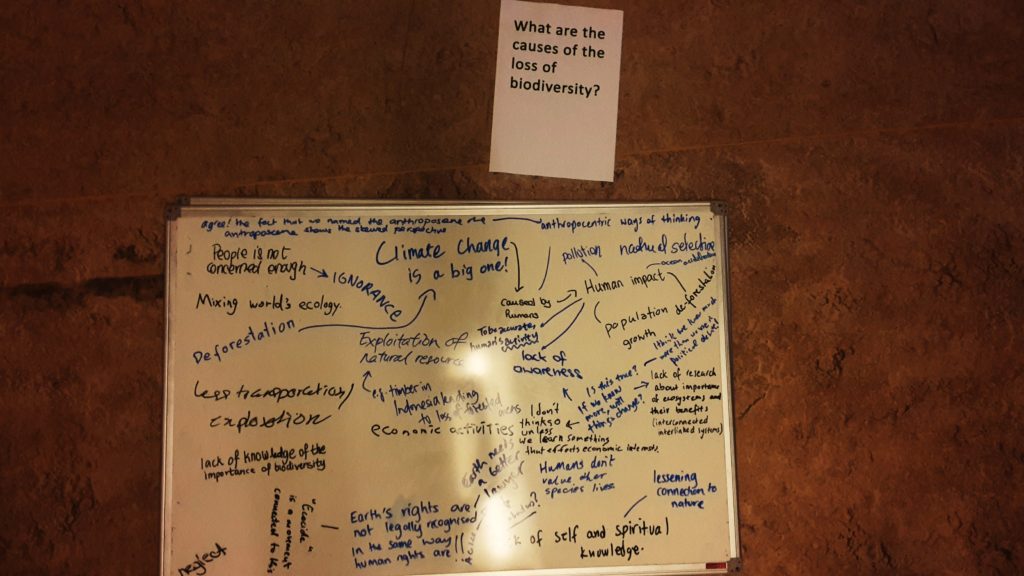 What are the
causes of the
loss of
biodiversity?
agree! the fact that we named the anthropocene the
anthropocene shows the skewed perspective
anthropocentric ways of thinking
People is not
concerned enough
IGNORANCE
Climate Change
is a big one!
pollution
natural selection
ocean acidification
Human impact
deforestation
population
growth
Caused by
humans
Mixing world's ecology
Deforestation
Exploitation of
natural resource
To be accurate,
human's activity
lack of
awareness
e.g. timber in
Indonesia leading
to loss of forested areas
Less transportation/
explosion
economic activities
I don't
think so
unless
we learn something
that efforts economic interests.
Is this true?
If we knew
more, will
change?
I think we know much
more than we
political desire!
lack of research
about importance
of ecosystems and
their benefits
(interconnected
interlinked systems)
lack of knowledge of the
importance of biodiversity
Earth needs
a better
lawyer
Humans don't
value other
species lives
lessening
connection to
nature
"Ecocide"
is a movement
connected to this
Earth's rights are
not legally recognised
in the same way
human rights are
of self and spiritual
knowledge.
neglect